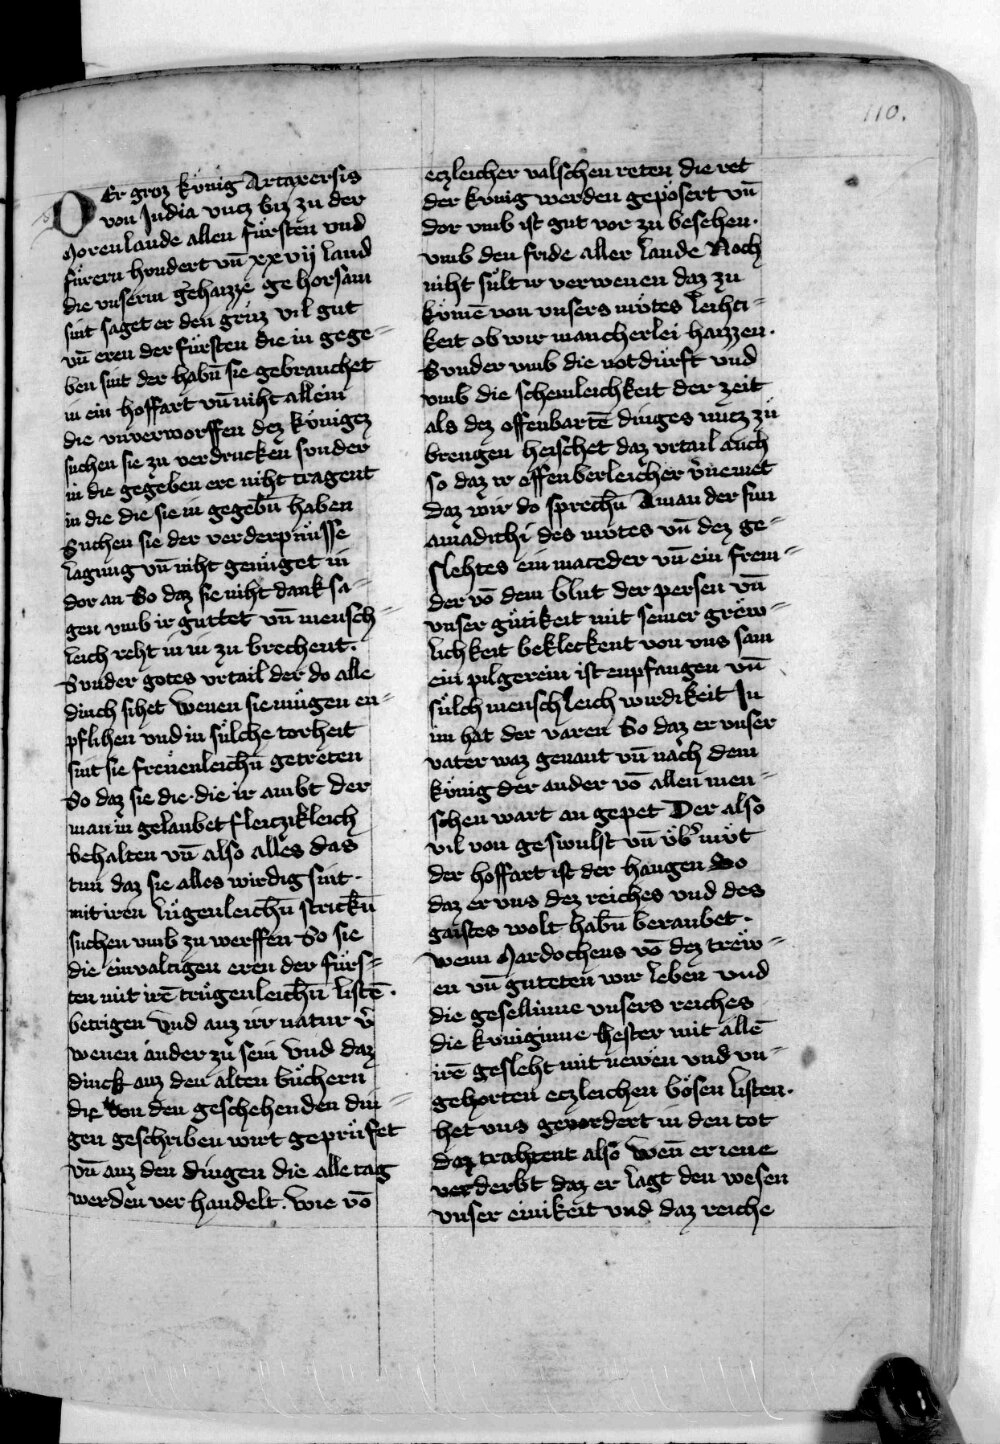 110.
DEr groz kuͤnig Artaxersis
von India vncz biz zu der
Morenlande allen fuͤrsten vnd
fuͤrern hundert vn̄ xxvij land
die vnserm gehaizze gehorsam
sint saget er den gruͤz vil gut
vn̄ eren der fuͤrsten die in gege-
ben sint der habn̄ sie gebrauchet
in ein hoffart vn̄ niht allein
die vnverworffen dez kuͤnigez
suchen sie zu verdrucken sunder
in die gegeben ere niht tragent
in die die sie in gegebn̄ haben
Suchen sie der verderpnuͤsse
lagung vn̄ niht genuͤget in
dor an So daz sie niht dank sa-
gen vmb ir guttet vn̄ mensch-
leich reht in in zu brechent.
Svnder gotes vrtail der do alle
dinch sihet wenen sie muͤgen en-
pflihen vnd in suͤlche torheit
sint sie freuenleichn̄ getreten
So daz sie die die ir ambt der
man in gelaubet fleizzikleich
behalten vn̄ also alles das
tun daz sie alles wirdig sint.
mit iren luͤgenleichn̄ strickn̄
suchen vmb zu werffen So sie
die einvaltigen eren der fuͤrs-
ten mit irē truͤgenleichn̄ listē.
betrigen vnd auz irr natur v̄
wenen ander zuͤ sein vnd daz
dinck auz den alten buͤchern
die von den geschehenden din-
gen geschriben wirt gepruͤfet
vn̄ auz den dingen die alle tag
werden ver handelt. wie vō
eczleicher valschen reten die ret
der kuͤnig werden gepoͤsert vn̄
dor vmb ist gut vor zu besehen.
vmb den fride aller lande Noch
niht suͤlt ir verwenen daz zu
kuͤmē von vnsers muͤtes leihti-
keit ob wir mancherlei haizzen.
Svnder vmb die notduͤrft vnd
vmb die schemleichkeit der zeit
als dez offenbartē dinges nucz zuͤ
brengen heischet daz vrtail auch
so daz ir offenberleicher v̄nemet
daz wir do sprechn̄ Aman der sun
amadithi des muͤtes vn̄ dez ge-
slehtes ein maceder vn̄ ein frem-
der vō dem blut der persen vn̄
vnser guͤtikeit mit seiner greuͤ-
lichkeit bekleckent von vns sam
ein pilgerein ist enpfangen vn̄
suͤlch menschleich wirdikeit In
im hat der varen So daz er vnser
vater waz genant vn̄ nach dem
kuͤnig der ander vō allen men-
schen wart an gepet Der also
vil von geswulst vn̄ vͤb̄muͤt
der hoffart ist der hangen So
daz er vns dez reiches vnd des
gaistes wolt habn̄ beraubet.
wenn Mardocheus vō dez trew-
en vn̄ guteten wir leben vnd
die gesellinne vnsers reiches
die kuͤniginne hester mit allē
irē gesleht mit newen vnd vn-
gehorten eczleichen boͤsen listen.
het vns gevordert in den tot
daz trahtent also wen̄ er iene
verderbt daz er lagt den wesen
vnser einikeit vnd daz reiche